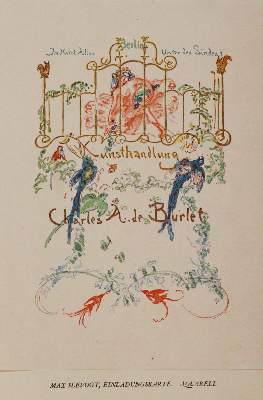 Berlin
Im Hotel Adlon Unter den Linden 1
Kunsthandlung
Charles A. de Burlet
MAX SLEVOGT, EINLADUNGSKARTE. AQUARELL